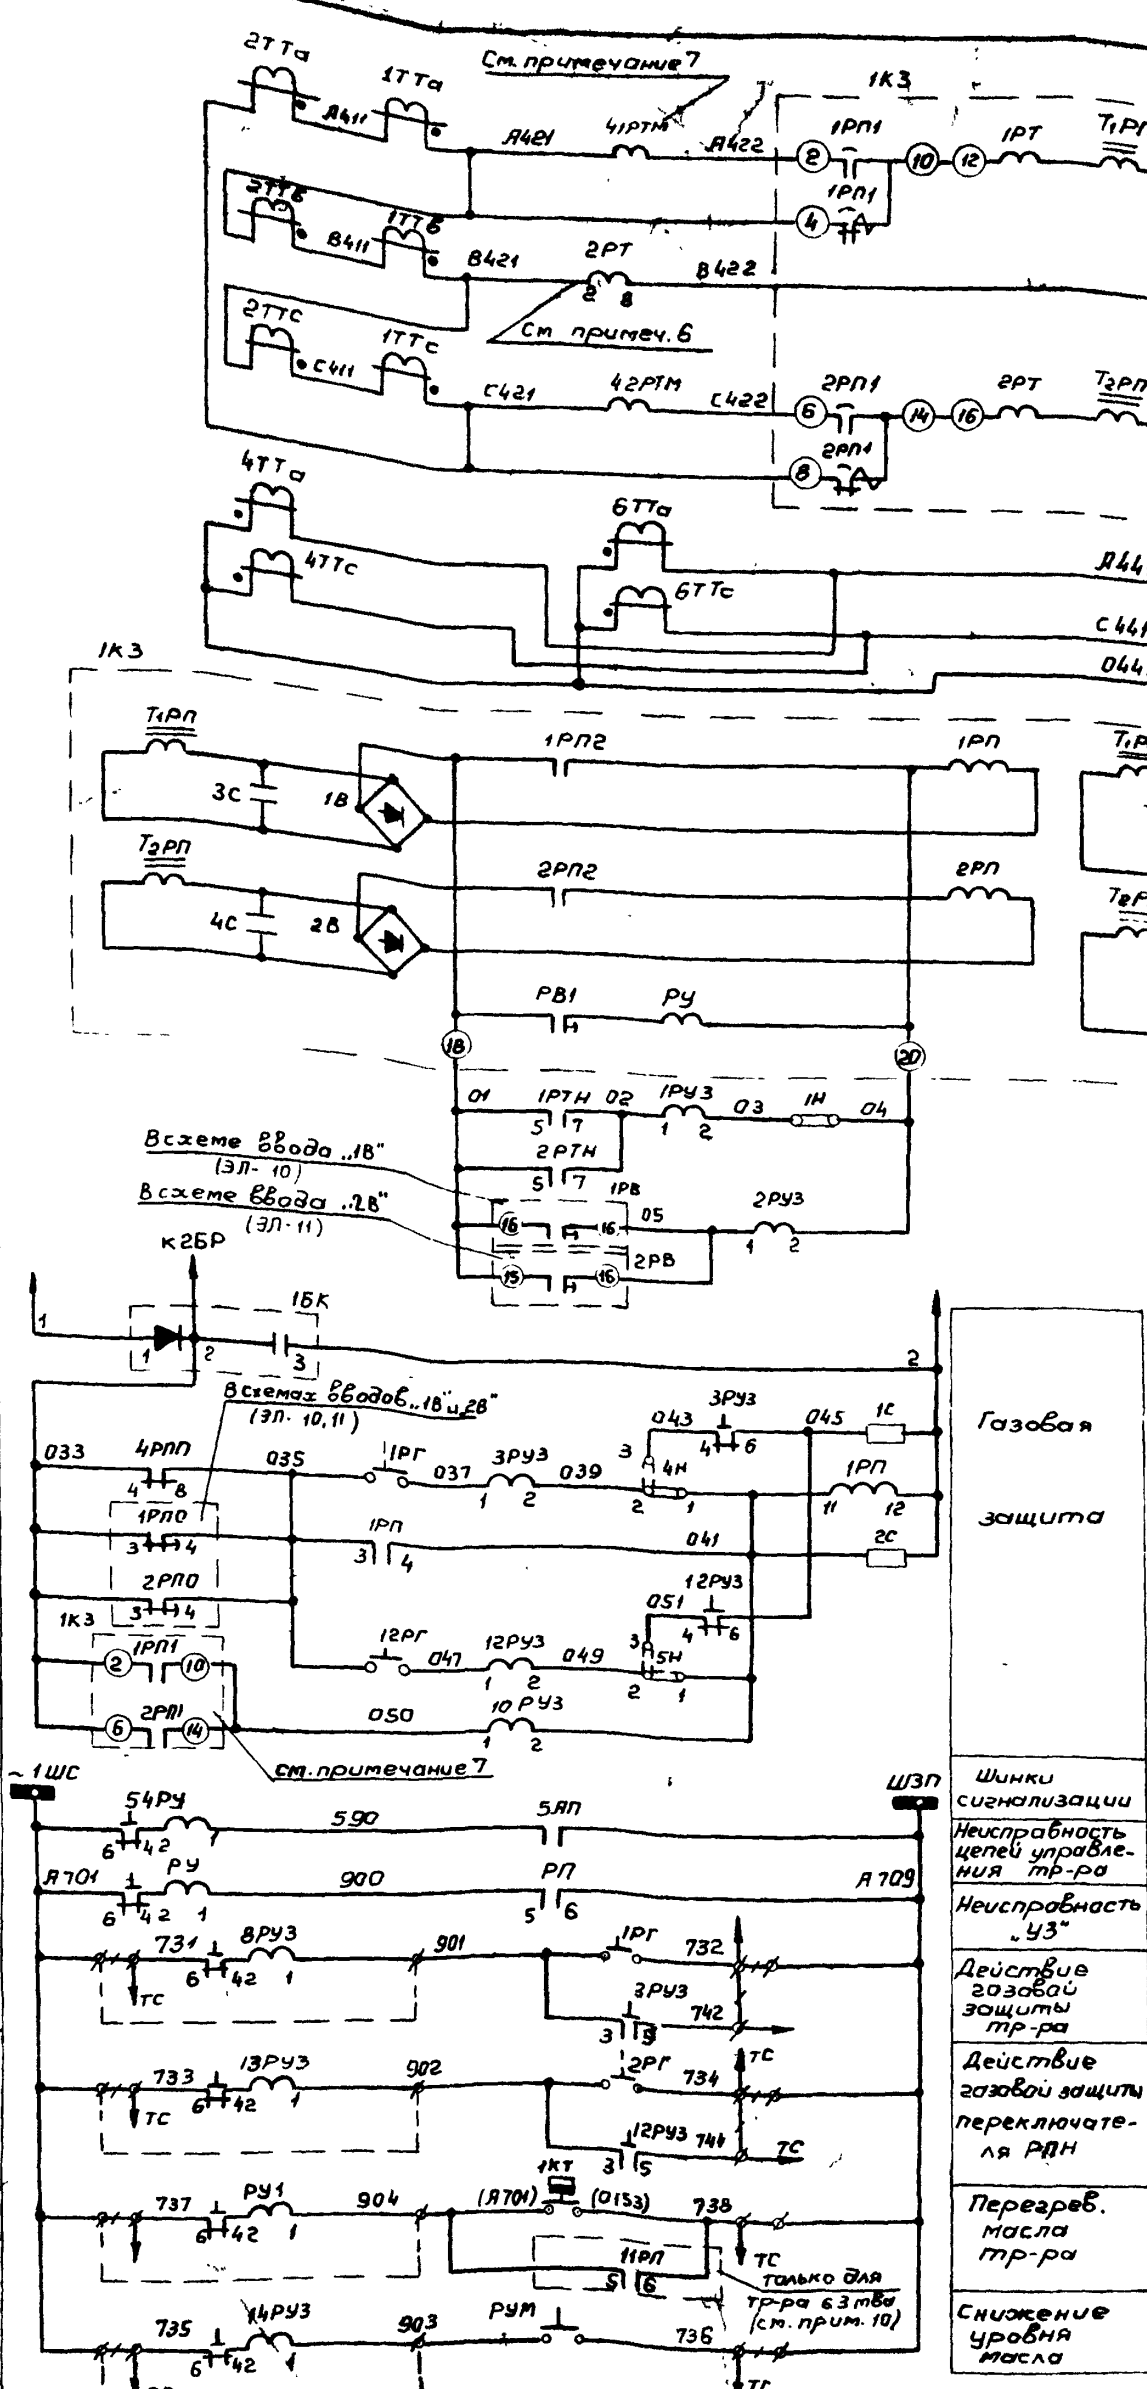 См. примечание 7
2ТТа
1ТТа
А411
А421
41РТМ
А422
1КЗ
1РП1
2
10
12
1РТ
4
1РП1
2ТТв
1ТТв
В411
В421
2РТ
2 8
В422
См примеч. 6
2ТТс
1ТТс
С411
С421
42РТМ
С422
2РП1
6
14
16
2РТ
Т2РП
8
2РП1
4ТТа
4ТТс
6ТТа
6ТТс
А44
С441
О44
1КЗ
Т1РП
3С
1В
1РП2
1РП
Т2РП
4С
2В
2РП2
2РП
РВ1
РУ
18
20
01
1РТН
5 7
02
1РУЗ
1 2
03
1Н
04
2РТН
5 7
В схеме ввода „1В"
(ЭЛ- 10)
В схеме ввода „2В"
(ЭЛ-11)
1РВ
16
16
05
2РУЗ
1 2
2РВ
15
16
к 2БР
1
1БК
1 2
3
2
В схемах вводов „1В" и „2В"
(ЭЛ- 10,11)
033
4РПП
4 8
035
1РГ
037
3РУЗ
1 2
039
3
4Н
2 1
043
3РУЗ
4 6
045
1С
1РП
11 12
1РПО
3 4
1РП
3 4
041
2С
2РПО
3 4
12РУЗ
051
4 6
1КЗ
1РП1
2
10
12РГ
047
12РУЗ
1 2
049
3
5Н
2 1
2РП1
6
14
050
10 РУЗ
1 2
см. примечание 7
Газовая
защита
~ 1ШС
ШЗП
Шинки
сигнализации
54РУ
6 4 2 1
590
5ЛП
Неисправность
цепей управле-
ния тр-ра
А701
РУ
6 4 2 1
900
РП
5 6
А709
Неисправность
„УЗ"
731
6 42
8РУЗ
1
901
1РГ
732
ТС
3РУЗ
3 5
742
Действие
газовой
защиты
тр-ра
733
6 42
13РУЗ
1
902
2РГ
734
ТС
ТС
12РУЗ
3 5
744
ТС
Действие
газовой защиты
переключате-
ля РПН
737
6 42
РУ1
1
904
1КТ
(А701)
(0153)
738
ТС
11РП
5 6
только для
тр-ра 63 мва
(см. прим. 10)
Перегрев.
масла
тр-ра
735
6 42
14РУЗ
1
903
РУМ
736
ТС
Снижение
уровня
масла